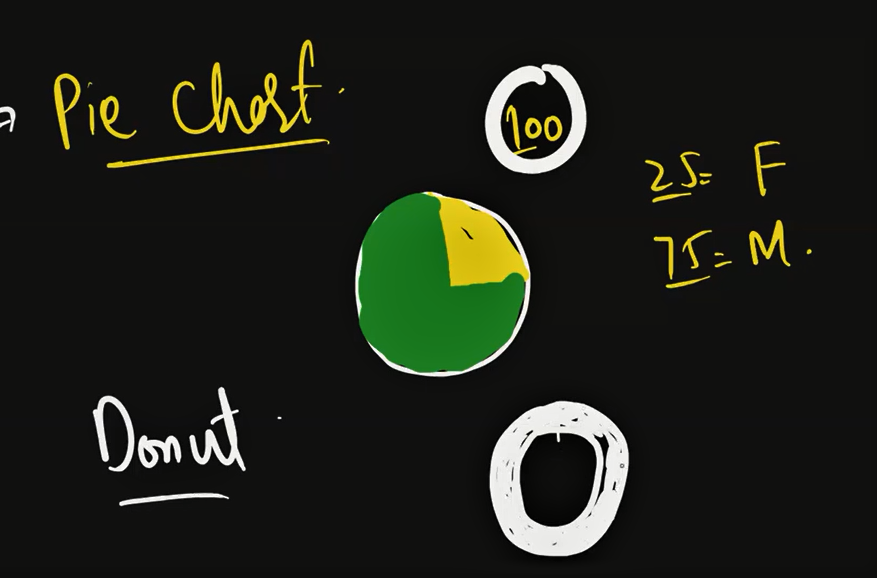 Pie Chart.
100
25 = F
75 = M.
Donut.